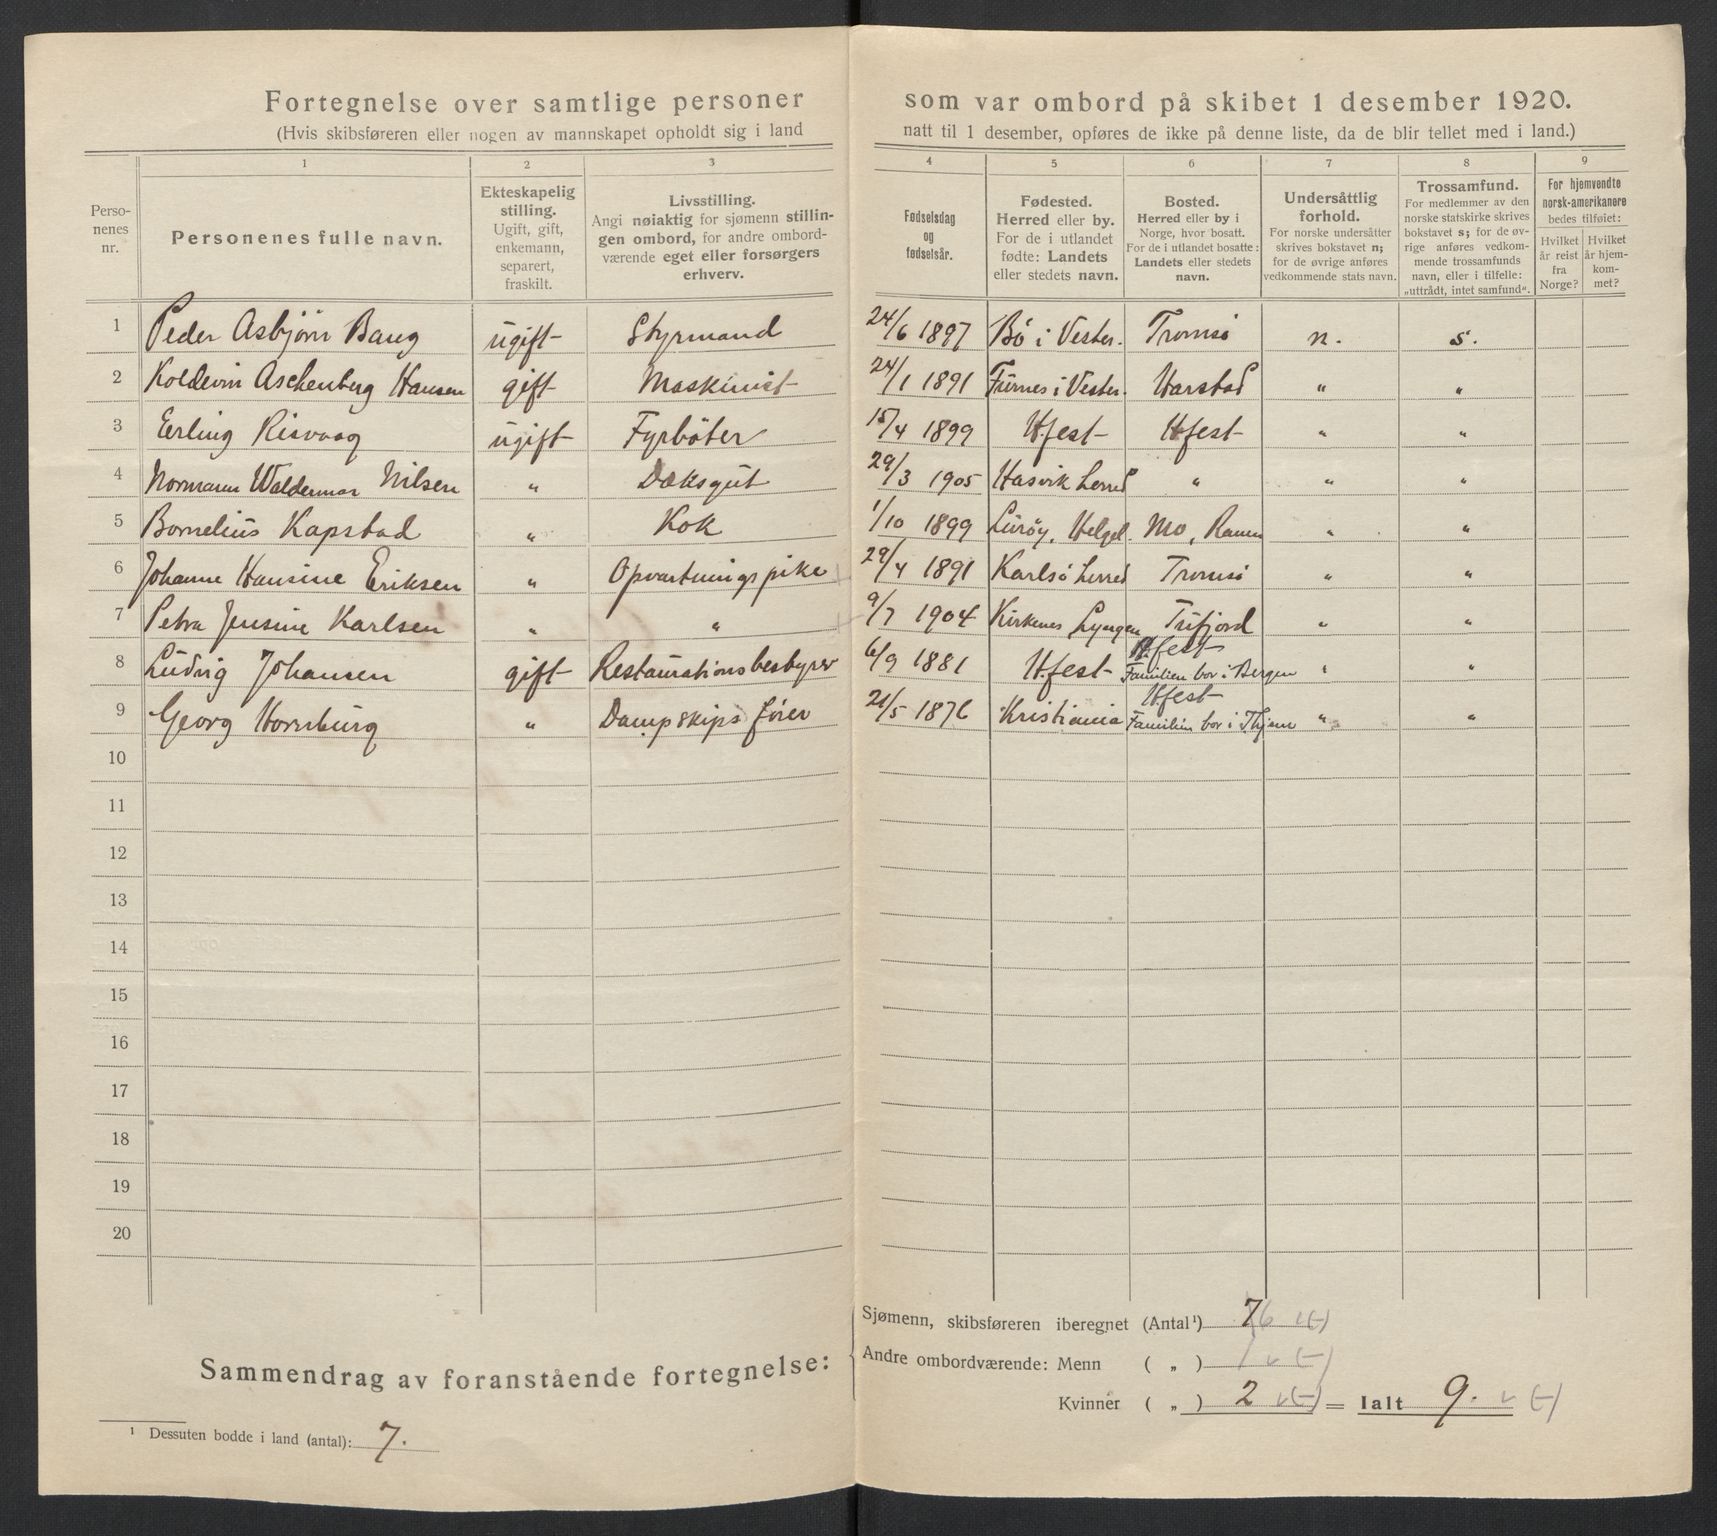 Fortegnelse over samtlige personer som var ombord på skibet 1 desember 1920.
(Hvis skibsføreren eller nogen av mannskapet opholdt sig i land natt til 1 desember, opføres de ikke på denne liste, da de blir tellet med i land.)
1 2 3 4 5 6 7 8 9
Perso-
nenes
nr.
Personenes fulle navn.
Ekteskapelig
stilling.
Ugift, gift,
enkemann,
separert,
fraskilt.
Livsstilling.
Angi nøiaktig for sjømenn stillin-
gen ombord, for andre ombord-
værende eget eller forsørgers
erhverv.
Fødselsdag
og
fødselsår.
Fødested.
Herred eller by.
For de i utlandet
fødte: Landets
eller stedets navn.
Bosted.
Herred eller by i
Norge, hvor bosatt.
For de i utlandet bosatte:
Landets eller stedets
navn.
Undersåttlig
forhold.
For norske undersåtter
skrives bokstavet n;
for de øvrige anføres
vedkommende stats navn.
Trossamfund.
For medlemmer av den
norske statskirke skrives
bokstavet s; for de øv-
rige anføres vedkom-
mende trossamfunds
navn, eller i tilfelle:
„uttrådt, intet samfund“.
For hjemvendte
norsk-amerikanere
bedes tilføiet:
Hvilket
år reist
fra
Norge?
Hvilket
år hjem-
kom-
met?
1 Peder Asbjörn Baug ugift Styrmand 24/6 1897 Bö i Vester. Tromsö n. s.
2 Koldevin Aschenberg Hansen gift Maskinist 24/1 1891 i Vester. Harstad " "
3 Erling Risvaag ugift Fyrböter 15/4 1899 H.fest H.fest " "
4 Normann Waldemar Nilsen " Dæksgut 29/3 1905 Hasvik Herred " " "
5 Bornelius Kapstad " Kok 1/10 1899 Lüröy, Helgel. Mo, Ranen " "
6 Johanne Hansine Eriksen " Opvartningspike 29/4 1891 Karlsö Herred Tromsö " "
7 Petra Jensine Karlsen " " 9/7 1904 Kirkenes Lyngen Tüfjord " "
8 Ludvig Johansen gift Restaurationsbestyrer 6/9 1881 H.fest H.fest Familien bor i Bergen " "
9 Georg Hornburg " Dampskipsförer 21/5 1876 Kristiania H.fest Familien bor i Thjem " "
10
11
12
13
14
15
16
17
18
19
20
Sammendrag av foranstående fortegnelse:
Sjømenn, skibsføreren iberegnet (Antal¹) 7 6 v(-)
Andre ombordværende: Menn ( „ ) 1 v(-)
Kvinner ( „ ) 2 v(-) = Ialt 9. v (-)
¹ Dessuten bodde i land (antal): 7.